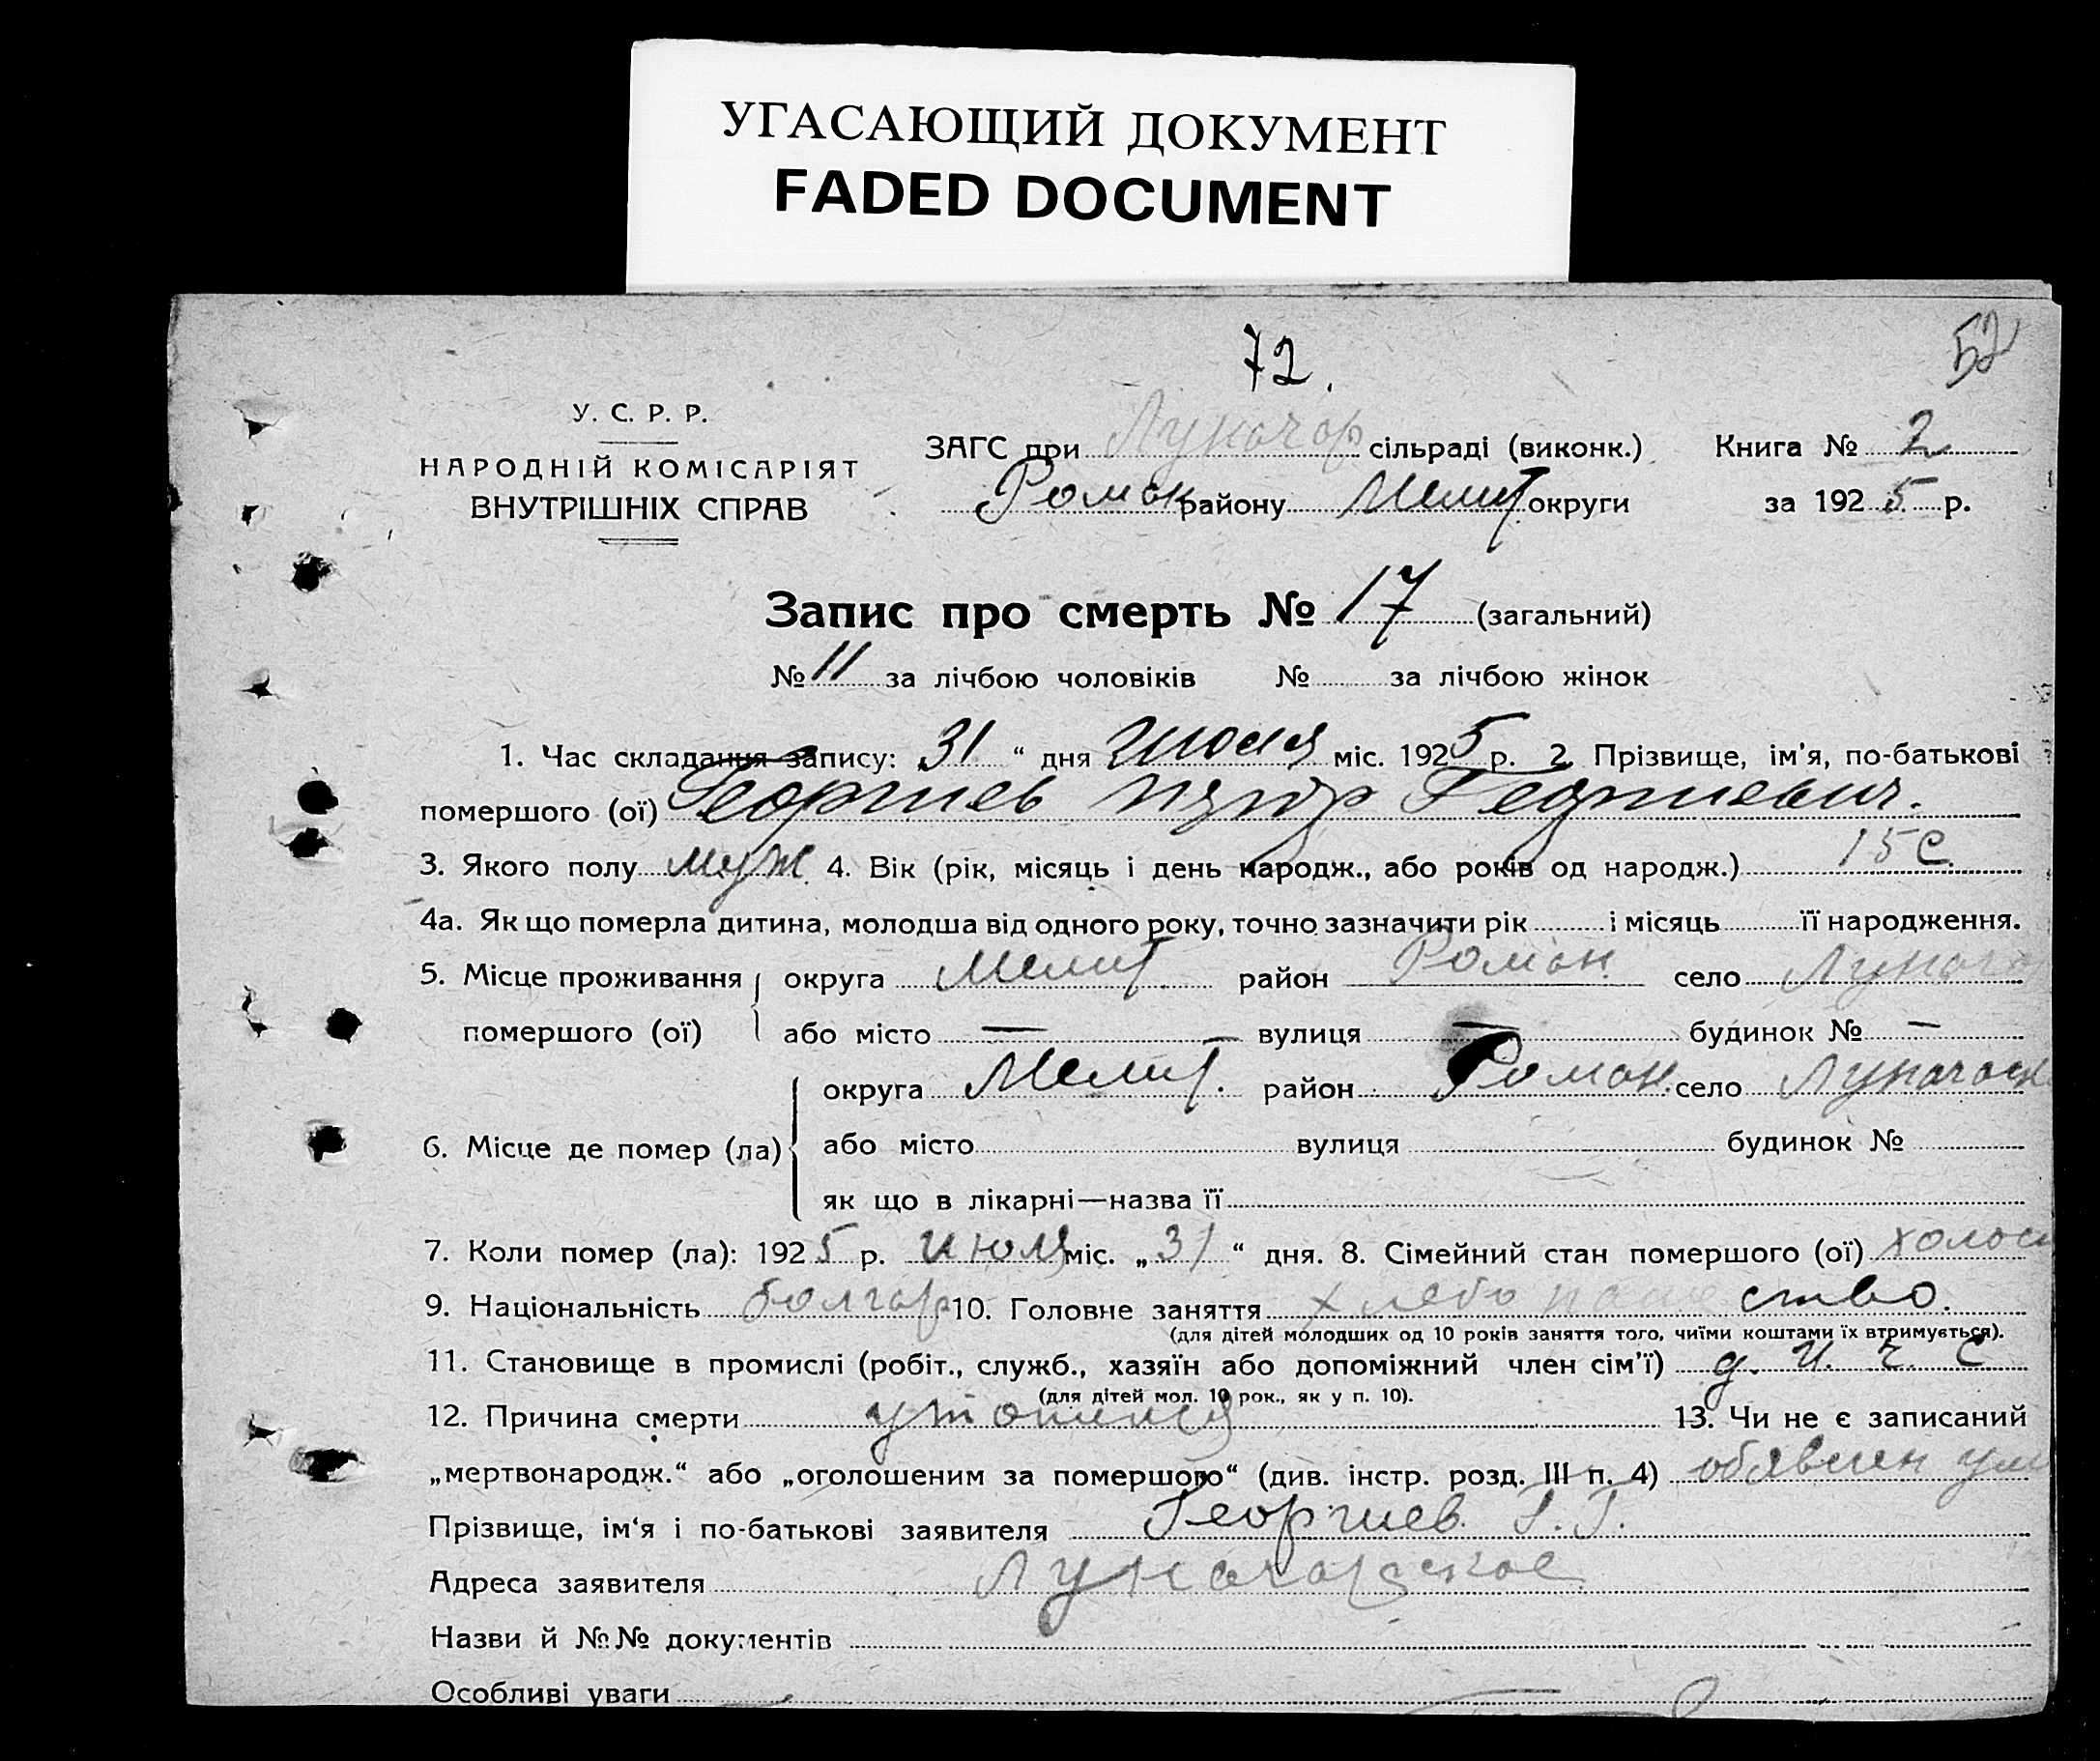 УГАСАЮЩИЙ ДОКУМЕНТ
FADED DOCUMENT
72.
52
У. С. Р. Р.
НАРОДНІЙ КОМІСАРІЯТ
ВНУТРІШНІХ СПРАВ
ЗАГС при Луначар сільраді (виконк.) Книга № 2
Роман району Мелит округи за 1925 р.
Запис про смерть № 17 (загальний)
№ 11 за лічбою чоловіків № за лічбою жінок
1. Час складання запису: 31 “ дня Июля міс. 1925 р. 2. Прізвище, ім'я, по-батькові
помершого (ої) Георгиев Петр Георгиевич.
3. Якого полу муж. 4. Вік (рік, місяць і день народж., або років од народж.) 15
4а. Як що померла дитина, молодша від одного року, точно зазначити рік і місяць її народження.
5. Місце проживання округа Мелит. район Роман. село Луначар
помершого (ої) або місто — вулиця — будинок № —
округа Мелит. район Роман. село Луначарск
6. Місце де помер (ла) або місто вулиця будинок №
як що в лікарні—назва її
7. Коли помер (ла): 1925 р. июля міс. „31“ дня. 8. Сімейний стан помершого (ої) холост
9. Національність болгар 10. Головне заняття хлебопашество.
(для дітей молодших од 10 років заняття того, чиїми коштами їх втримується).
11. Становище в промислі (робіт., служб., хазяїн або допоміжний член сім'ї)
(для дітей мол. 10 рок., як у п. 10).
12. Причина смерти утопился 13. Чи не є записаний
„мертвонародж.“ або „оголошеним за помершого“ (див. інстр. розд. III п. 4) обявлен
Прізвище, ім‘я і по-батькові заявителя Георгиев Г. Г.
Адреса заявителя Луначарское
Назви й №№ документів
Особливі уваги